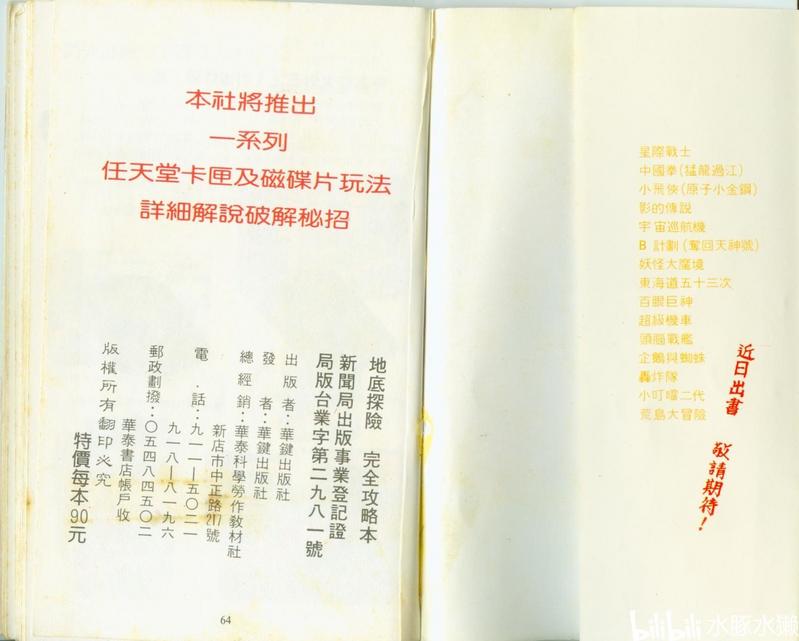 本社將推出
一系列
任天堂卡匣及磁碟片玩法
詳細解說破解秘招
地底探險　完全攻略本
新聞局出版事業登記證
局版台業字第二九八一號
出版者：華鍵出版社
發　者：華鍵出版社
總經銷：華泰科學勞作教材社
新店市中正路217號
電．話：九一一—五〇二一
九一八—八一九六
郵政劃撥：〇五四八四五〇二
華泰書店帳戶收
版權所有翻印必究
特價每本90元
64
星際戰士
中國拳(猛龍過江)
小飛俠(原子小金鋼)
影的傳說
宇宙巡航機
B 計劃(奪回天神號)
妖怪大魔境
東海道五十三次
百眼巨神
超級機車
頭腦戰艦
企鵝與蜘蛛
轟炸隊
小叮噹二代
荒島大冒險
近日出書
敬請期待！
bilibili 水豚水獺